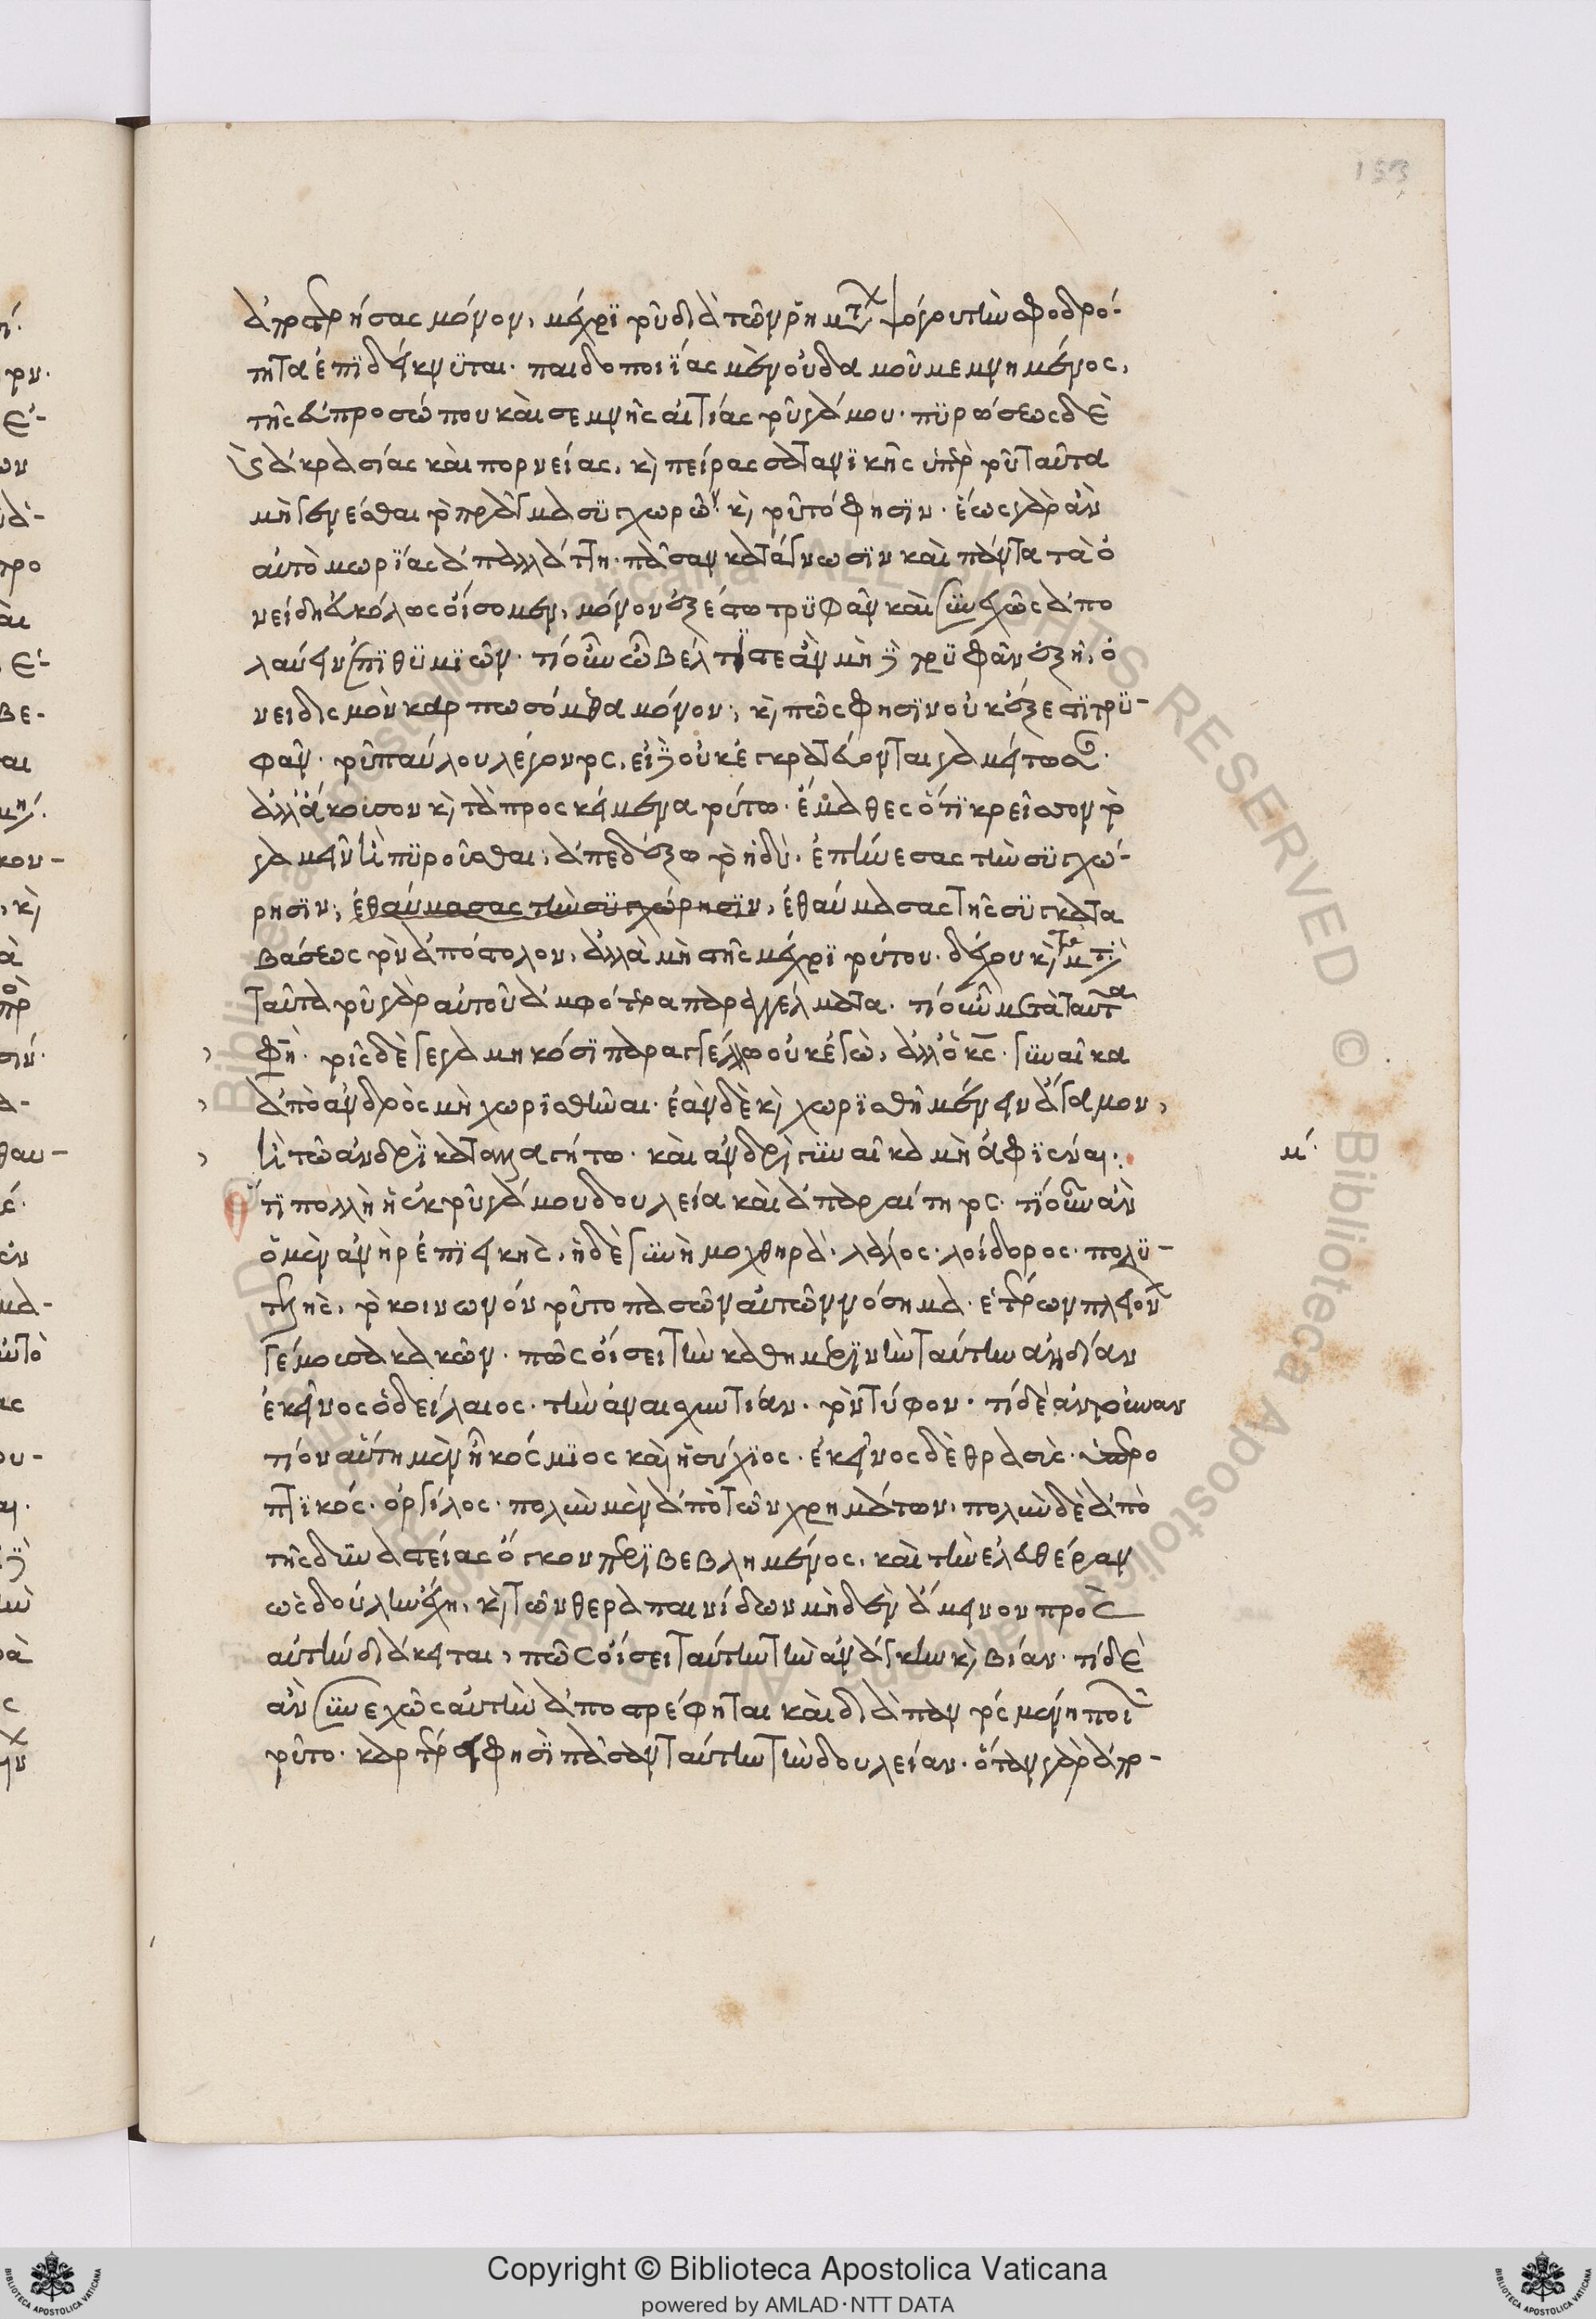 ἀποστερήσας μόνον, μέχρι τοῦ διὰ τῶν ῥημάτων ψόγου τὴν σφοδρό-
τητα ἐπιδείκνυται. παιδοποιΐας μὲν οὐδαμοῦ μεμνημένος,
τῆς εὐπροσώπου καὶ σεμνῆς αἰτίας τοῦ γάμου. πυρώσεως δὲ
καὶ ἀκρασίας καὶ πορνείας, καὶ πείρας σατανικῆς ὑπὲρ τοῦ ταῦτα
μὴ γενέσθαι τὸ πρᾶγμα συγχωρῶν. καὶ τοῦτό φησιν. ἕως γὰρ ἂν
αὐτὸ μωρίας ἀπαλλάττῃ. πᾶσαν κατάγνωσιν καὶ πάντα τὰ ὀ
νείδη εὐκόλως οἴσομεν, μόνον ἐξέστω τρυφᾶν καὶ συνεχῶς ἀπο
λαύειν ἐπιθυμιῶν. τί οὖν ὦ βέλτιστε ἂν μὴ δὲ τρυφᾶν ἐξῇ, ὀ
νειδισμὸν καρπωσόμεθα μόνον; καὶ πῶς φησιν οὐκ ἔξεστι τρυ-
φᾶν. τοῦ παύλου λέγοντος, εἰ δὲ οὐκ ἐγκρατεύονται γαμείτωσαν.
ἀλλ' ἄκουσον καὶ τὰ προσκείμενα τούτω. ἔμαθες ὅτι κρεῖσσον τὸ
γαμεῖν ἢ πυροῦσθαι, ἀπεδέξω τὸ ἡδύ, ἐπήνεσας τὴν συγχώ-
ρησιν, ἐθαύμασας τὴν συγχώρησιν, ἐθαύμασας τῆς συγκατα
βάσεως τὸν ἀπόστολον, ἀλλὰ μὴ στῇς μέχρι τούτου. δέχου καὶ τὰ μετὰ
ταῦτα τοῦ γὰρ αὐτοῦ ἀμφότερα παραγγέλματα. τί οὖν μετὰ ταῦτα
φησί. τοῖς δὲ γεγαμηκόσι παραγγέλλω οὐκ ἐγὼ, ἀλλ' ὁ κς. γυναῖκα
ἀπὸ ἀνδρὸς μὴ χωρισθῆναι. ἐὰν δὲ καὶ χωρισθῇ μένειν ἄγαμον,
ἢ τῶ ἀνδρὶ καταλλαγήτω. καὶ ἄνδρα γυναῖκα μὴ ἀφιέναι.
μ´
ὅτι πολλὴ ἡ ἐκ τοῦ γάμου δουλεία καὶ ἀπαραίτητος. τί οὖν ἂν
ὁ μὲν ἀνὴρ ἐπιεικὴς, ἡ δὲ γυνὴ μοχθηρά. λάλος. λοίδορος. πολυ-
τελής, τὸ κοινωνόν τοῦτο πασῶν αὐτῶν νόσημα. ἑτέρων πλειόνων
γέμουσα κακῶν. πῶς οἴσει τὴν καθημερινὴν ταύτην ἀηδίαν
ἐκεῖνος ὁ δείλαιος. τὴν ἀναισχυντίαν. τὸν τύφον. τί δὲ ἂν τοὐναν
τίον αὕτη μὲν ᾖ κόσμιος καὶ ἡσύχιος. ἐκεῖνος δὲ θρασὺς. ὑπερο
πτικός. ὀργίλος. πολὺν μὲν ἀπὸ τῶν χρημάτων. πολὺν δὲ ἀπὸ
τῆς δυναστείας ὄγκον περιβεβλημένος. καὶ τὴν ἐλευθέραν
ὡς δούλην ἔχῃ, καὶ τῶν θεραπαινίδων μηδὲν ἄμεινον πρὸς
αὐτὴν διάκειται, πῶς οἴσει ταύτην τὴν ἀνάγκην καὶ βίαν. τί δὲ
ἂν συνεχῶς αὐτὴν ἀποστρέφηται καὶ διὰ παντὸς μένῃ ποιῶν
τοῦτο. καρτέρει φησὶ πᾶσαν ταύτην τὴν δουλείαν. ὅταν γὰρ ἀπο-